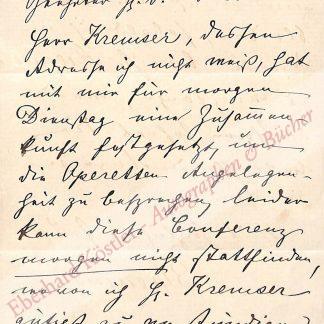 Geehrter H.
Herr Kremser, dessen
Adresse ich nicht weiß, hat
mit mir für morgen
Dienstag eine Zusammen-
kunft festgesetzt, um
die Operetten Angelegen-
heit zu besprechen, leider
kann diese Conferenz
morgen nicht stattfinden,
wovon ich H. Kremser
gütigst zu
Eberhard Köstler Autographen & Bücher